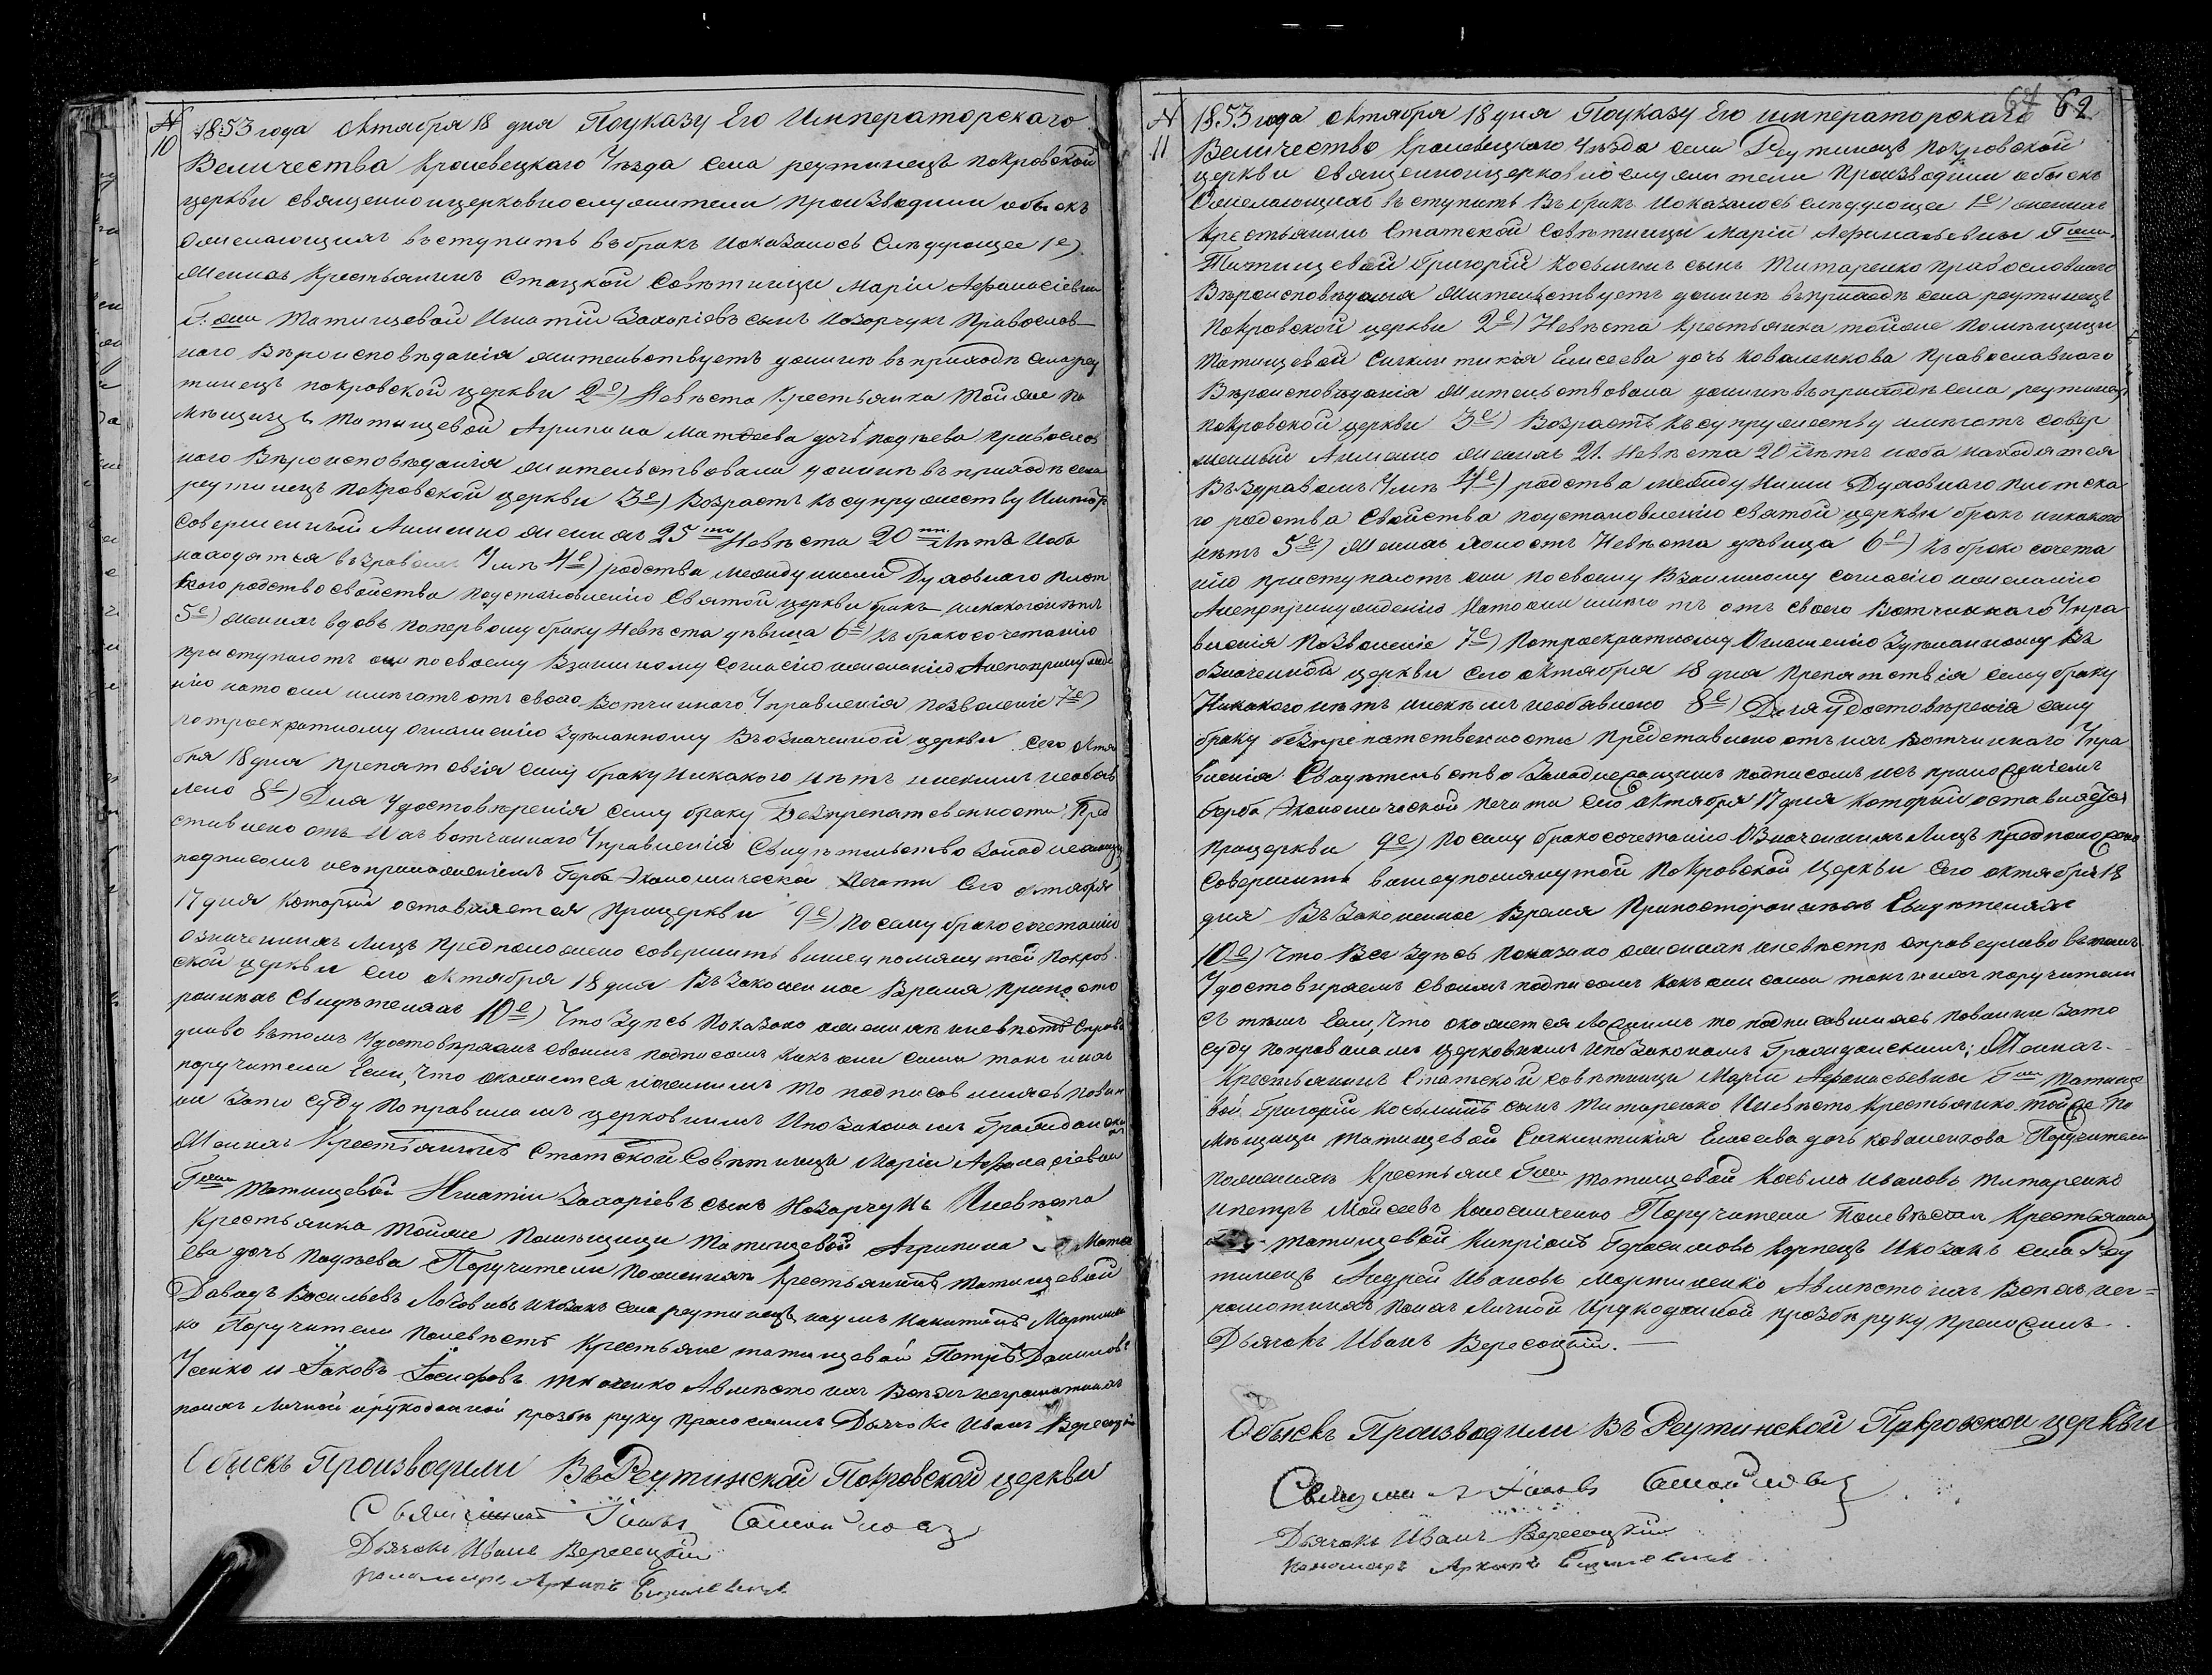 № 10
1853 года Октября 18 дня Поуказу Его Императорского
Величества Кролевецкаго Уѣзда села реутинецъ покровской
церкви священноицерковнослужители производили обыскъ
Ожелающихъ въступить въбракъ ипоказалось Слѣдующее 1е)
Женихъ Крестьянинъ Стацкой Совѣтници Маріи Афанасіевни
Г:жи Татищевой Игнатій Захаріевъ сынъ Назарчукъ Православ-
ного Вѣроисповѣданія жительствуетъ донинѣ въприходѣ села реу
тинецъ покровской церкви 2е) Невѣста Крестьянка тойже по
мѣщицы Татищевой Агрипина Матѳеева дочь православ
ного Вѣроисповѣданія жительствовала донинѣ въприходѣ села
реутинецъ покровской церкви 3е) Возрастъ къ супружеству Имѣютъ
Совершенный Аименно женихъ 25ти Невѣста 20ти лѣтъ Иоба
находятся въздравомъ Умѣ 4е) родства между ними Духовнаго плот
ского родство свойства поустановленію Святой церкви бракъ никакогонѣтъ
5е) женихъ вдовъ поперьвому браку Невѣста дѣвица 6е) Къ бракосочетанію
приступаютъ они посвоему Взаимному Согласію ижеланію Анепопринужде
нію натоони имѣютъ отъ своего Вотчинного Управленія позволеніе 7е)
потроекратному оглашенію Здѣланному Въозначенной церкви Сего Октя
бря 18 дня препятсвія сему браку никакого нѣтъ инекимъ необяв
лено 8е) Для Удостовѣренія сему браку Безпрепятсвенности Пред
ставлено отъ Ихъ вотчинного Управленія Свидѣтельство Занадлежащимъ
подписомъ исприложеніемъ Герба Экономической Печати Сего октября
17 дня который оставляется прицеркви 9е) По сему бракосочетанію
означенныхъ Лицъ предположено совершить вышеупомянутой покров-
ской церкви сего октября 18 дня Въ Законенное Время припосто
роннихъ Свидѣтеляхъ 10е) Что Здѣсь показано оженихѣ иневѣстѣ Справе
дливо вътомъ Удостовѣряемъ своимъ подписомъ какъ они сами такъ иихъ
поручители Если, Что окажется ложнимъ то подписавшиясь повин
ни Зато суду поправиламъ церковнимъ ИпоЗаконамъ Гражданским
Женихъ Крестьянинъ Статской Совѣтницы Маріи Афанасіевни
Гжи Татищевой Игнатій Захаріевъ сынъ Назарчукъ Иневѣста
Крестьянка тойже Помѣщици Татищевой Агрипина Матѳе
ева дочь Поручители поженихѣ крестьянинъ татищевой
Давидъ Васильевъ Лозовикъ икозакъ села реутинецъ наумъ Никитинъ Мартинен
ко Поручители Поневѣстѣ Крестьяне татищевой Петръ Даниловъ
Усенко и Іаковъ Іосифовъ ткаченко Авмѣсто ихъ Всѣхъ неграмотныхъ
поихъ личной ирукоданной прозбѣ руку приложилъ Дьячокъ Иванъ Вересоцкій
Обыскъ Производили Въ Реутинской Покровской церкви
Священникъ Іаковъ Самойловъ
Дьячокъ Иванъ Вересоцкій
пономаръ Архипъ
67 62
№ 11
1853 года октября 18 дня Поуказу Его императорскаго
Величество Кролевецкаго Уѣзда села Реутинецъ покровской
церкви священноицерковнослужители производили обыскъ
Ожелающихъ въступить Въбракъ ипоказалось слѣдующее 1е) женихъ
Крестьянинъ Статской совѣтници Маріи Афанасьевны Гжи
Татищевой Григорій Косьминъ сынъ Титаренко православного
Вѣроисповѣданія жительствуетъ донинѣ въприходѣ села реутинецъ
Покровской церкви 2е) Невѣста крестьянка тойже помѣщици
Татищевой Синклитикія Елисеева дочь коваленкова православного
Вѣроисповѣданія жительствовала донинѣ въприходѣ села реутинецъ
покровской церкви 3е) Возрастъ къ супружеству имѣютъ совер
шенный Аименно женихъ 21. Невѣста 20 лѣтъ иоба находятся
Въздравомъ Умѣ 4е) родства между ними Духовнаго плотска
го родства Свойства поустановленію святой церкви бракъ никакого
нѣтъ 5е) Женихъ холостъ Невѣста дѣвица 6е) къ бракосочета
нію приступаютъ они посвоему Взаимному согласію ижеланію
Анепопринужденію натоони имѣютъ отъ своего Вотчинного Упра
вленія позволеніе 7е) потроекратному оглашенію Здѣланному Въ
означенной церкви сего октября 18 дня препятствія сему браку
Никакого нѣтъ инекѣмъ необявлено 8е) Для Удостовѣренія сему
браку безпрепятственности представлено отъ ихъ вотчинного Упра
вленія Свидѣтельство Занадлежащимъ подписомъ исъ приложеніемъ
Герба Экономической печати сего октября 17 дня который оставляется
прицеркви 9е) по сему бракосочетанію Означеннихъ Лицъ предположено
совершить вышеупомянутой покровской церкви сего октября 18
дня Въ Законенное Время припостороннихъ Свидѣтеляхъ
10е) Что Все Здѣсь показано оженихѣ иневѣстѣ справедливо вътомъ
Удостовираемъ своимъ подписомъ какъ они сами такъ иихъ поручители
съ тѣмъ Если, Что окажется Ложнимъ то подписавшиясь повинни Зато
суду поправиламъ церковнимъ ипоЗаконамъ Гражданскимъ; Женихъ
Крестьянинъ Статской совѣтници Маріи Афанасьевны Гжи Татище
вой Григорій Косьминъ сынъ Титаренко Иневѣста Крестьянка тойже По
мѣщици Татищевой Синклитикія Елисеева дочь коваленкова Поручители
поженихѣ Крестьяне Гжи татищевой Косьма Ивановъ титаренко
ипетръ Мойсеевъ Поручители Поневѣстѣ Крестьянинъ
татищевой Кипріанъ Герасимовъ Корнецъ Икозакъ села Реу
тинецъ Андрей Ивановъ Мартиненко Авмѣсто ихъ Всѣхъ нег=
рамотнихъ поихъ личной ирукоданной прозбѣ руку приложилъ
Дьячокъ Иванъ Вересоцкій.—
Обыскъ Производили Въ Реутинской Покровской церкви
Священникъ Іаковъ Самойловъ
Дьячокъ Иванъ Вересоцкій
пономаръ Архипъ